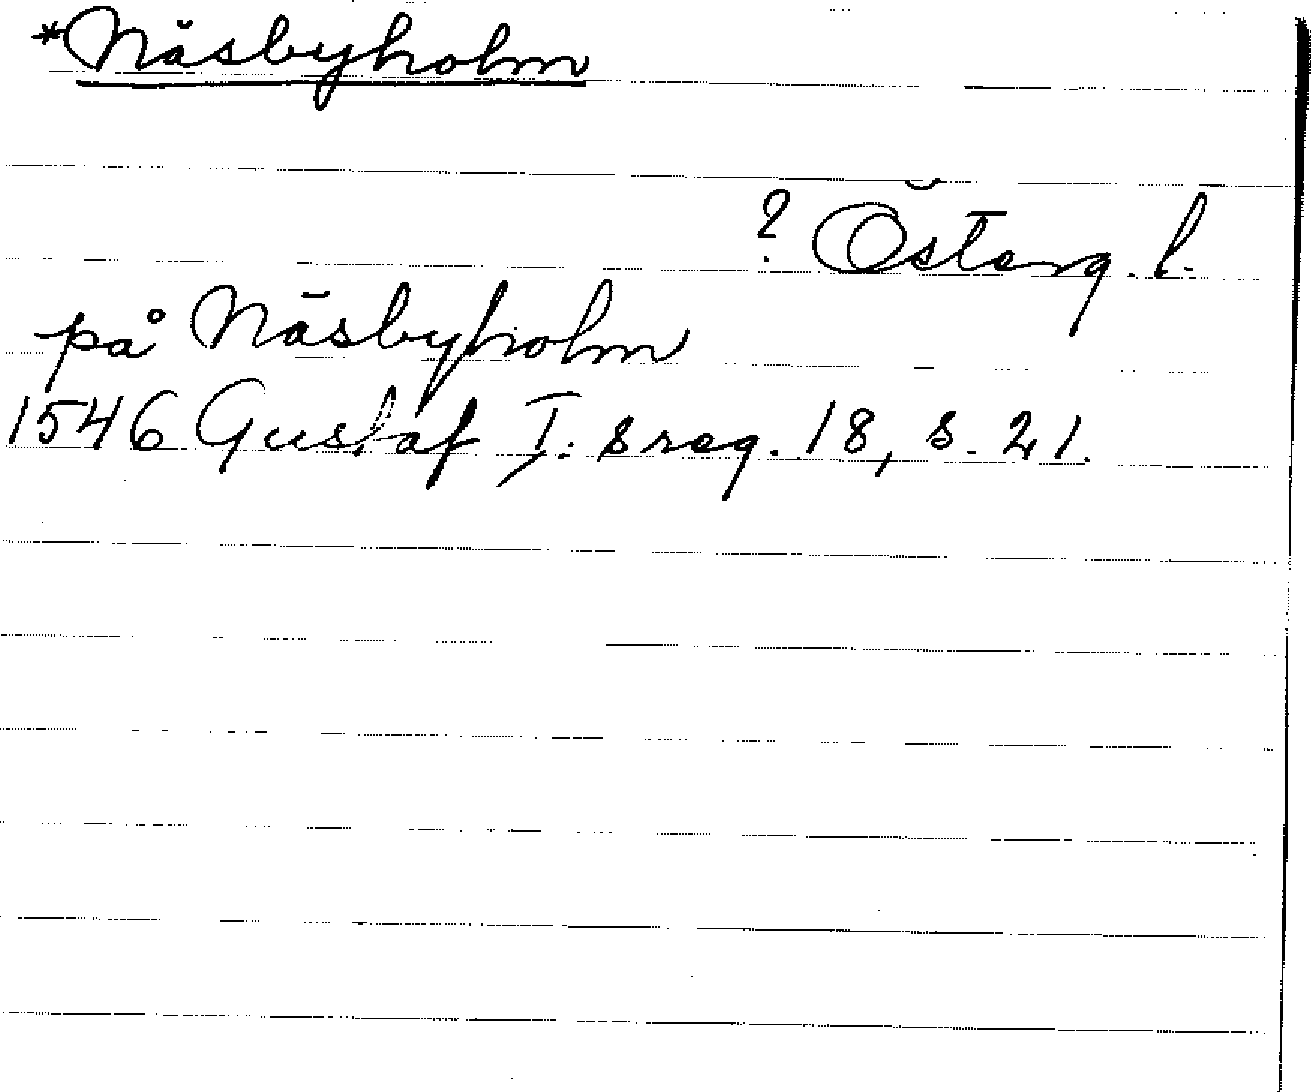 *Näsbyholm
? Österg. l.
på Näsbyholm
1546 Gustaf I: s reg. 18, s. 21.